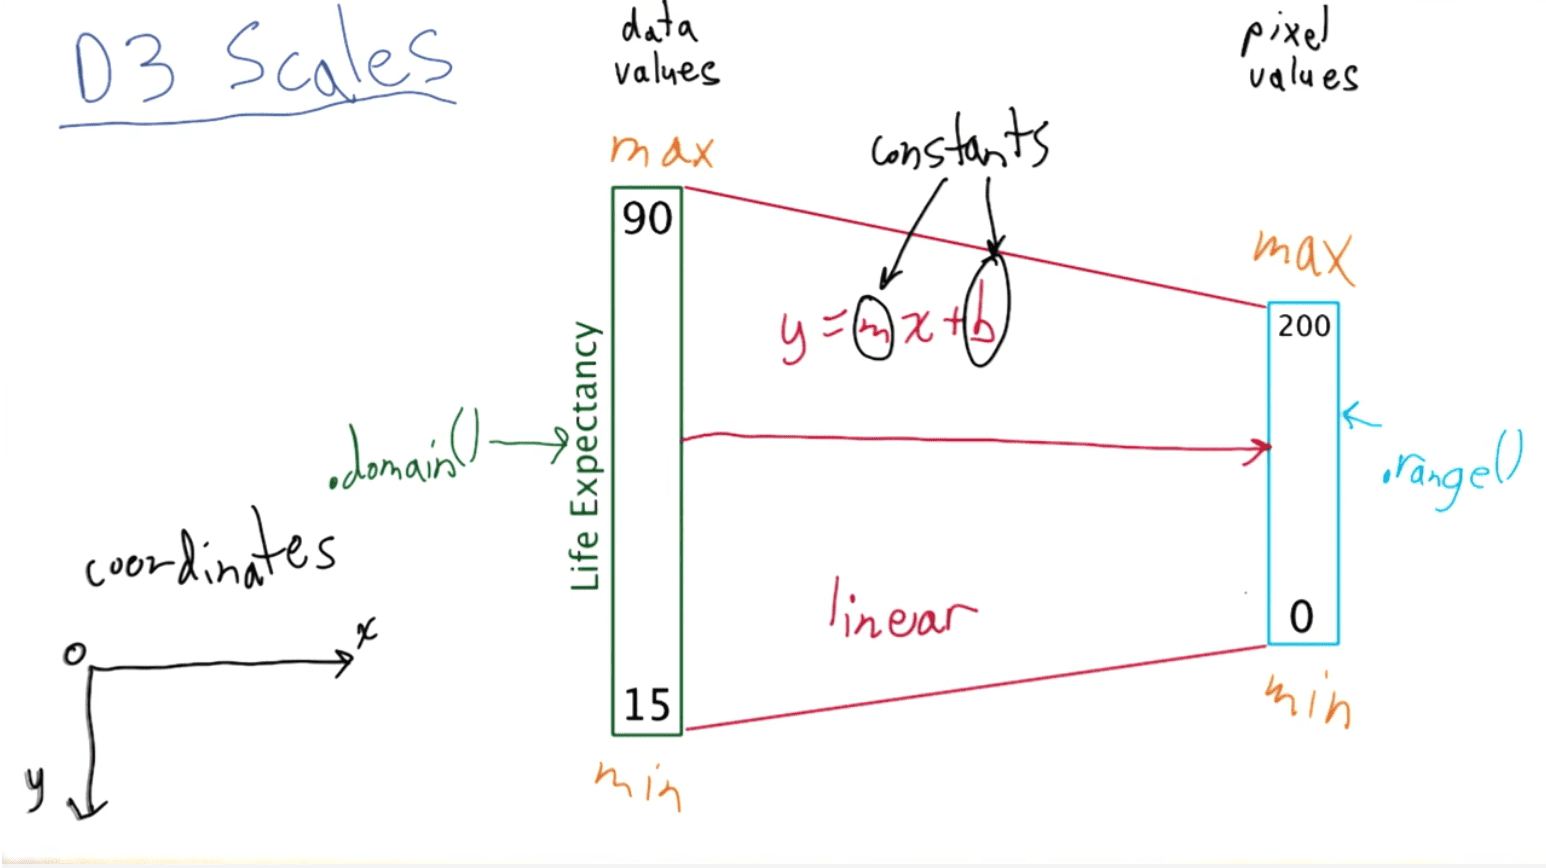 D3 Scales
data
values
pixel
values
max
constants
90
max
y = mx + b
200
Life Expectancy
.domain()
.range()
coordinates
linear
0
O
x
15
min
min
y